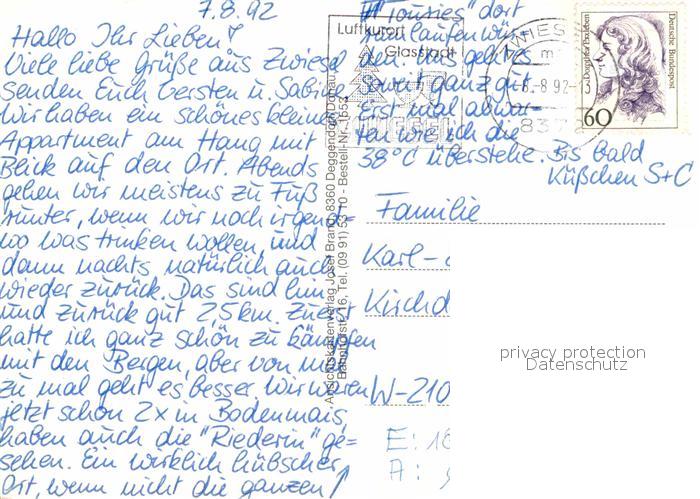 7.8.92
Hallo Ihr Lieben!
Viele liebe Grüße aus Zwiesel
senden Euch Carsten u. Sabine
Wir haben ein schönes kleines
Appartment am Hang mit
Blick auf den Ort. Abends
gehen wir meistens zu Fuß
runter, wenn wir noch irgend=
wo was trinken wollen, und
dann nachts natürlich auch
wieder zurück. Das sind hin
und zurück gut 2,5 km. Zuerst
hatte ich ganz schön zu kämpfen
mit den Bergen, aber von mal
zu mal geht es besser. Wir waren
jetzt schon 2x in Bodenmais,
haben auch die "Riederin" ge=
sehen. Ein wirklich hübscher
Ort, wenn nicht die ganzen
"Touries" dort
rumlaufen wür=
den. Uns geht es
sonst ganz gut
Erst mal abwar=
ten wie ich die
38°C überstehe. Bis bald
Küßchen S+C
Luftkurort
Glasstadt
ZWIESEL
-8.92-13
837
Deutsche Bundespost
60
Ansichtskartenverlag Josef Brandl, 8360 Deggendorf/Donau,
Bahnhofstr. 16, Tel. (09 91) 53 10 - Bestell-Nr. 1653
Familie
Karl-
Kirchd
W-210
E: 16
A:
privacy protection
Datenschutz